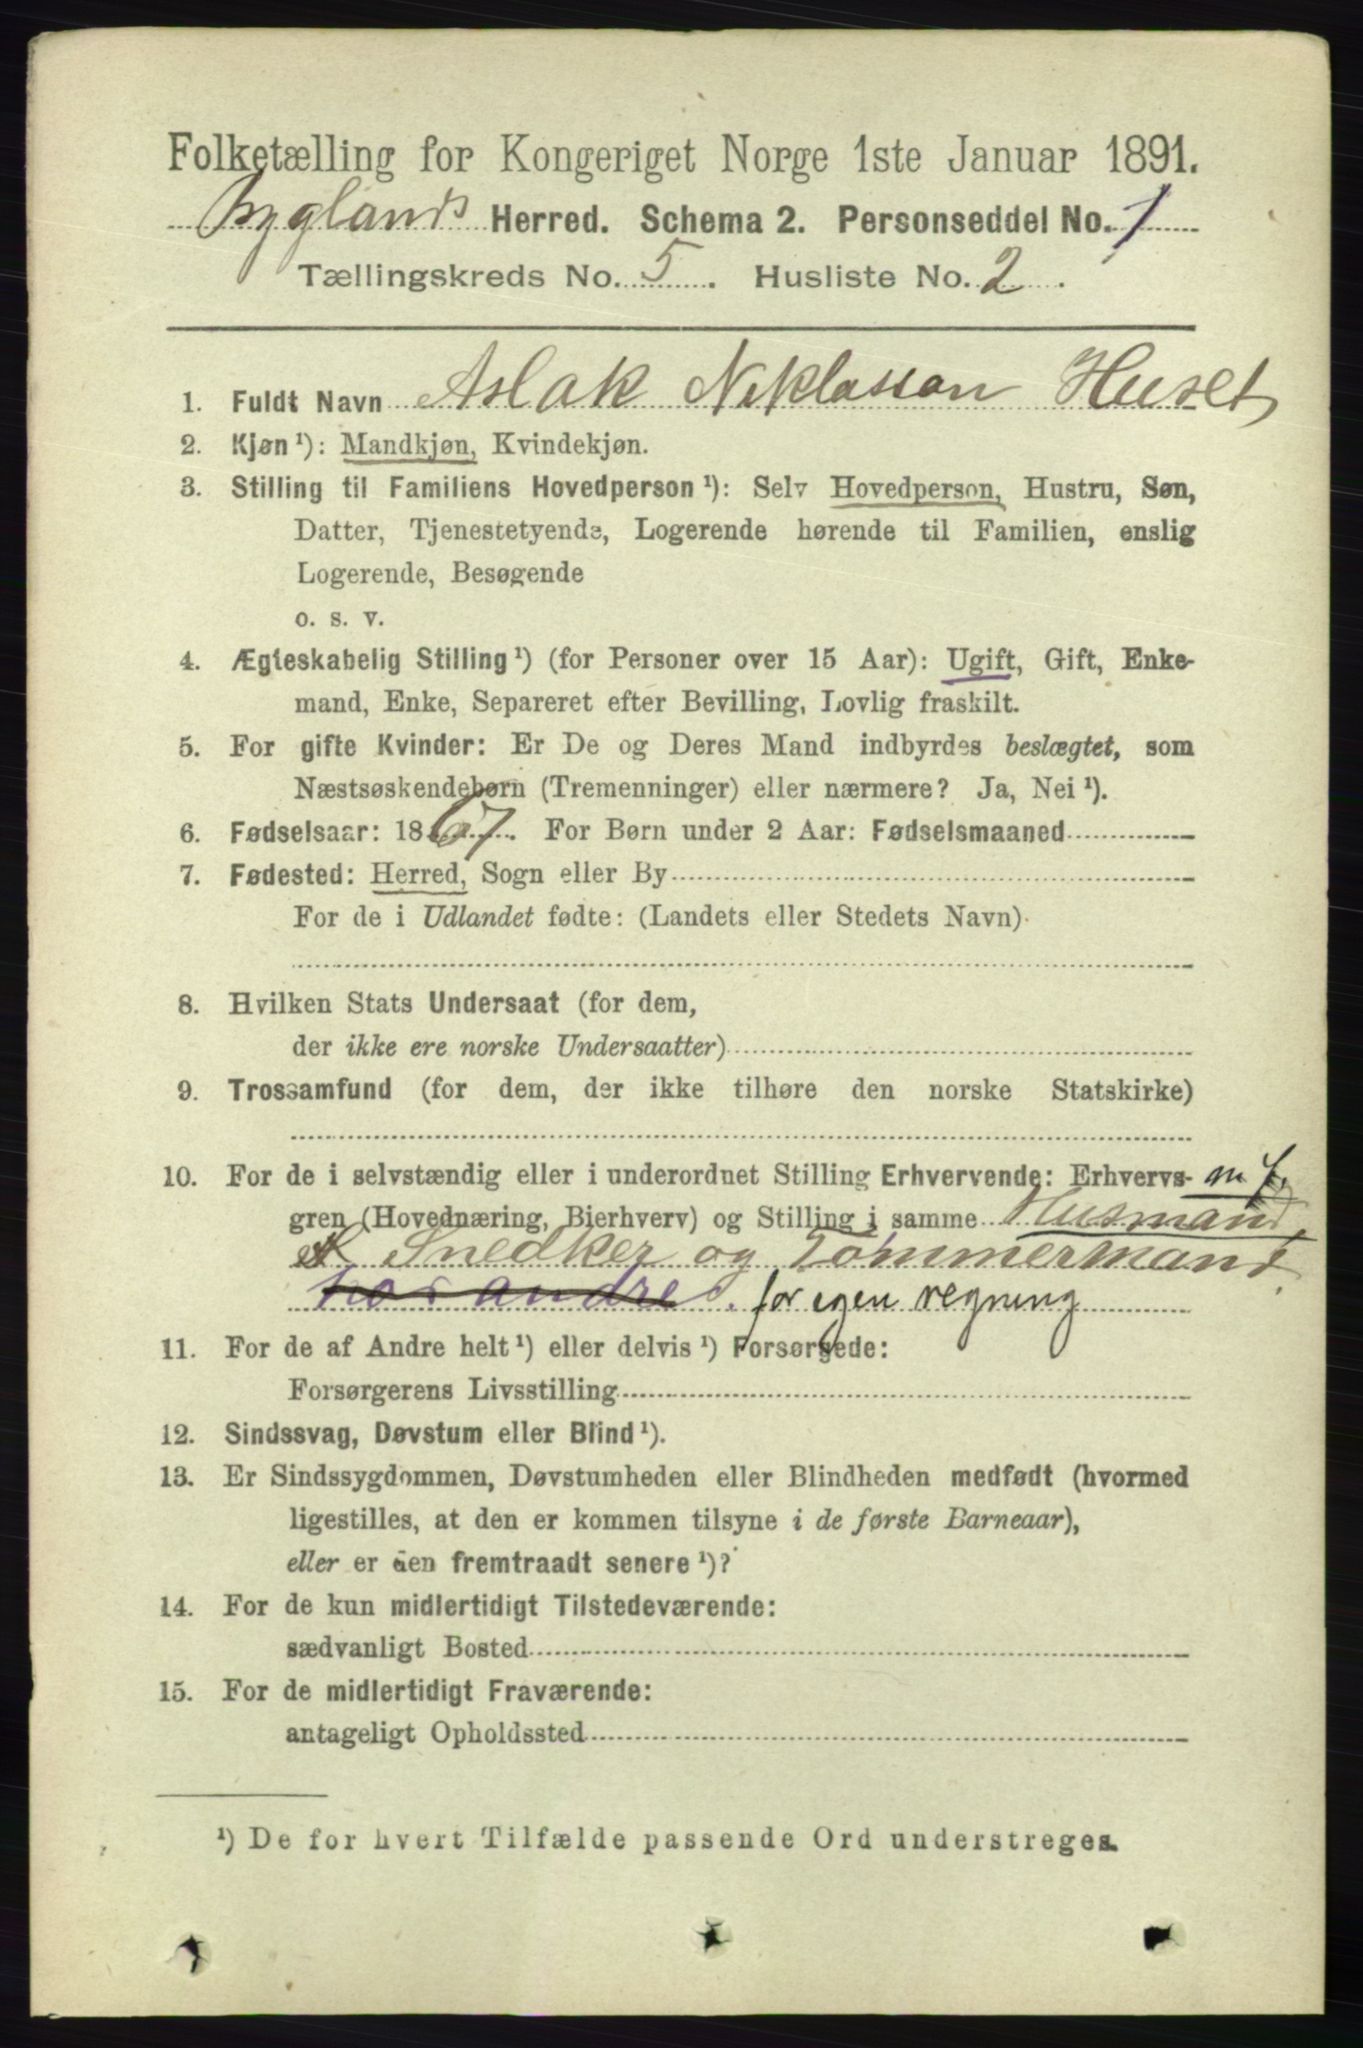 Folketælling for Kongeriget Norge 1ste Januar 1891.
Byglands Herred. Schema 2. Personseddel No. 1
Tællingskreds No. 5. Husliste No. 2.
1. Fuldt Navn Aslak Niklasson Huset
2. Kjøn¹): Mandkjøn, Kvindekjøn.
3. Stilling til Familiens Hovedperson¹): Selv Hovedperson, Hustru, Søn,
Datter, Tjenestetyende, Logerende hørende til Familien, enslig
Logerende, Besøgende
o. s. v.
4. Ægteskabelig Stilling¹) (for Personer over 15 Aar): Ugift, Gift, Enke-
mand, Enke, Separeret efter Bevilling, Lovlig fraskilt.
5. For gifte Kvinder: Er De og Deres Mand indbyrdes beslægtet, som
Næstsøskendebørn (Tremenninger) eller nærmere? Ja, Nei¹).
6. Fødselsaar: 1867. For Børn under 2 Aar: Fødselsmaaned
7. Fødested: Herred, Sogn eller By
For de i Udlandet fødte: (Landets eller Stedets Navn)
8. Hvilken Stats Undersaat (for dem,
der ikke ere norske Undersaatter)
9. Trossamfund (for dem, der ikke tilhøre den norske Statskirke)
10. For de i selvstændig eller i underordnet Stilling Erhvervende: Erhvervs- m J.
gren (Hovednæring, Bierhverv) og Stilling i samme Husmand
Snedker og Tømmermand
hos andre. for egen regning
11. For de af Andre helt¹) eller delvis¹) Forsørgede:
Forsørgerens Livsstilling
12. Sindssvag, Døvstum eller Blind¹).
13. Er Sindssygdommen, Døvstumheden eller Blindheden medfødt (hvormed
ligestilles, at den er kommen tilsyne i de første Barneaar),
eller er den fremtraadt senere¹)?
14. For de kun midlertidigt Tilstedeværende:
sædvanligt Bosted
15. For de midlertidigt Fraværende:
antageligt Opholdssted
¹) De for hvert Tilfælde passende Ord understreges.